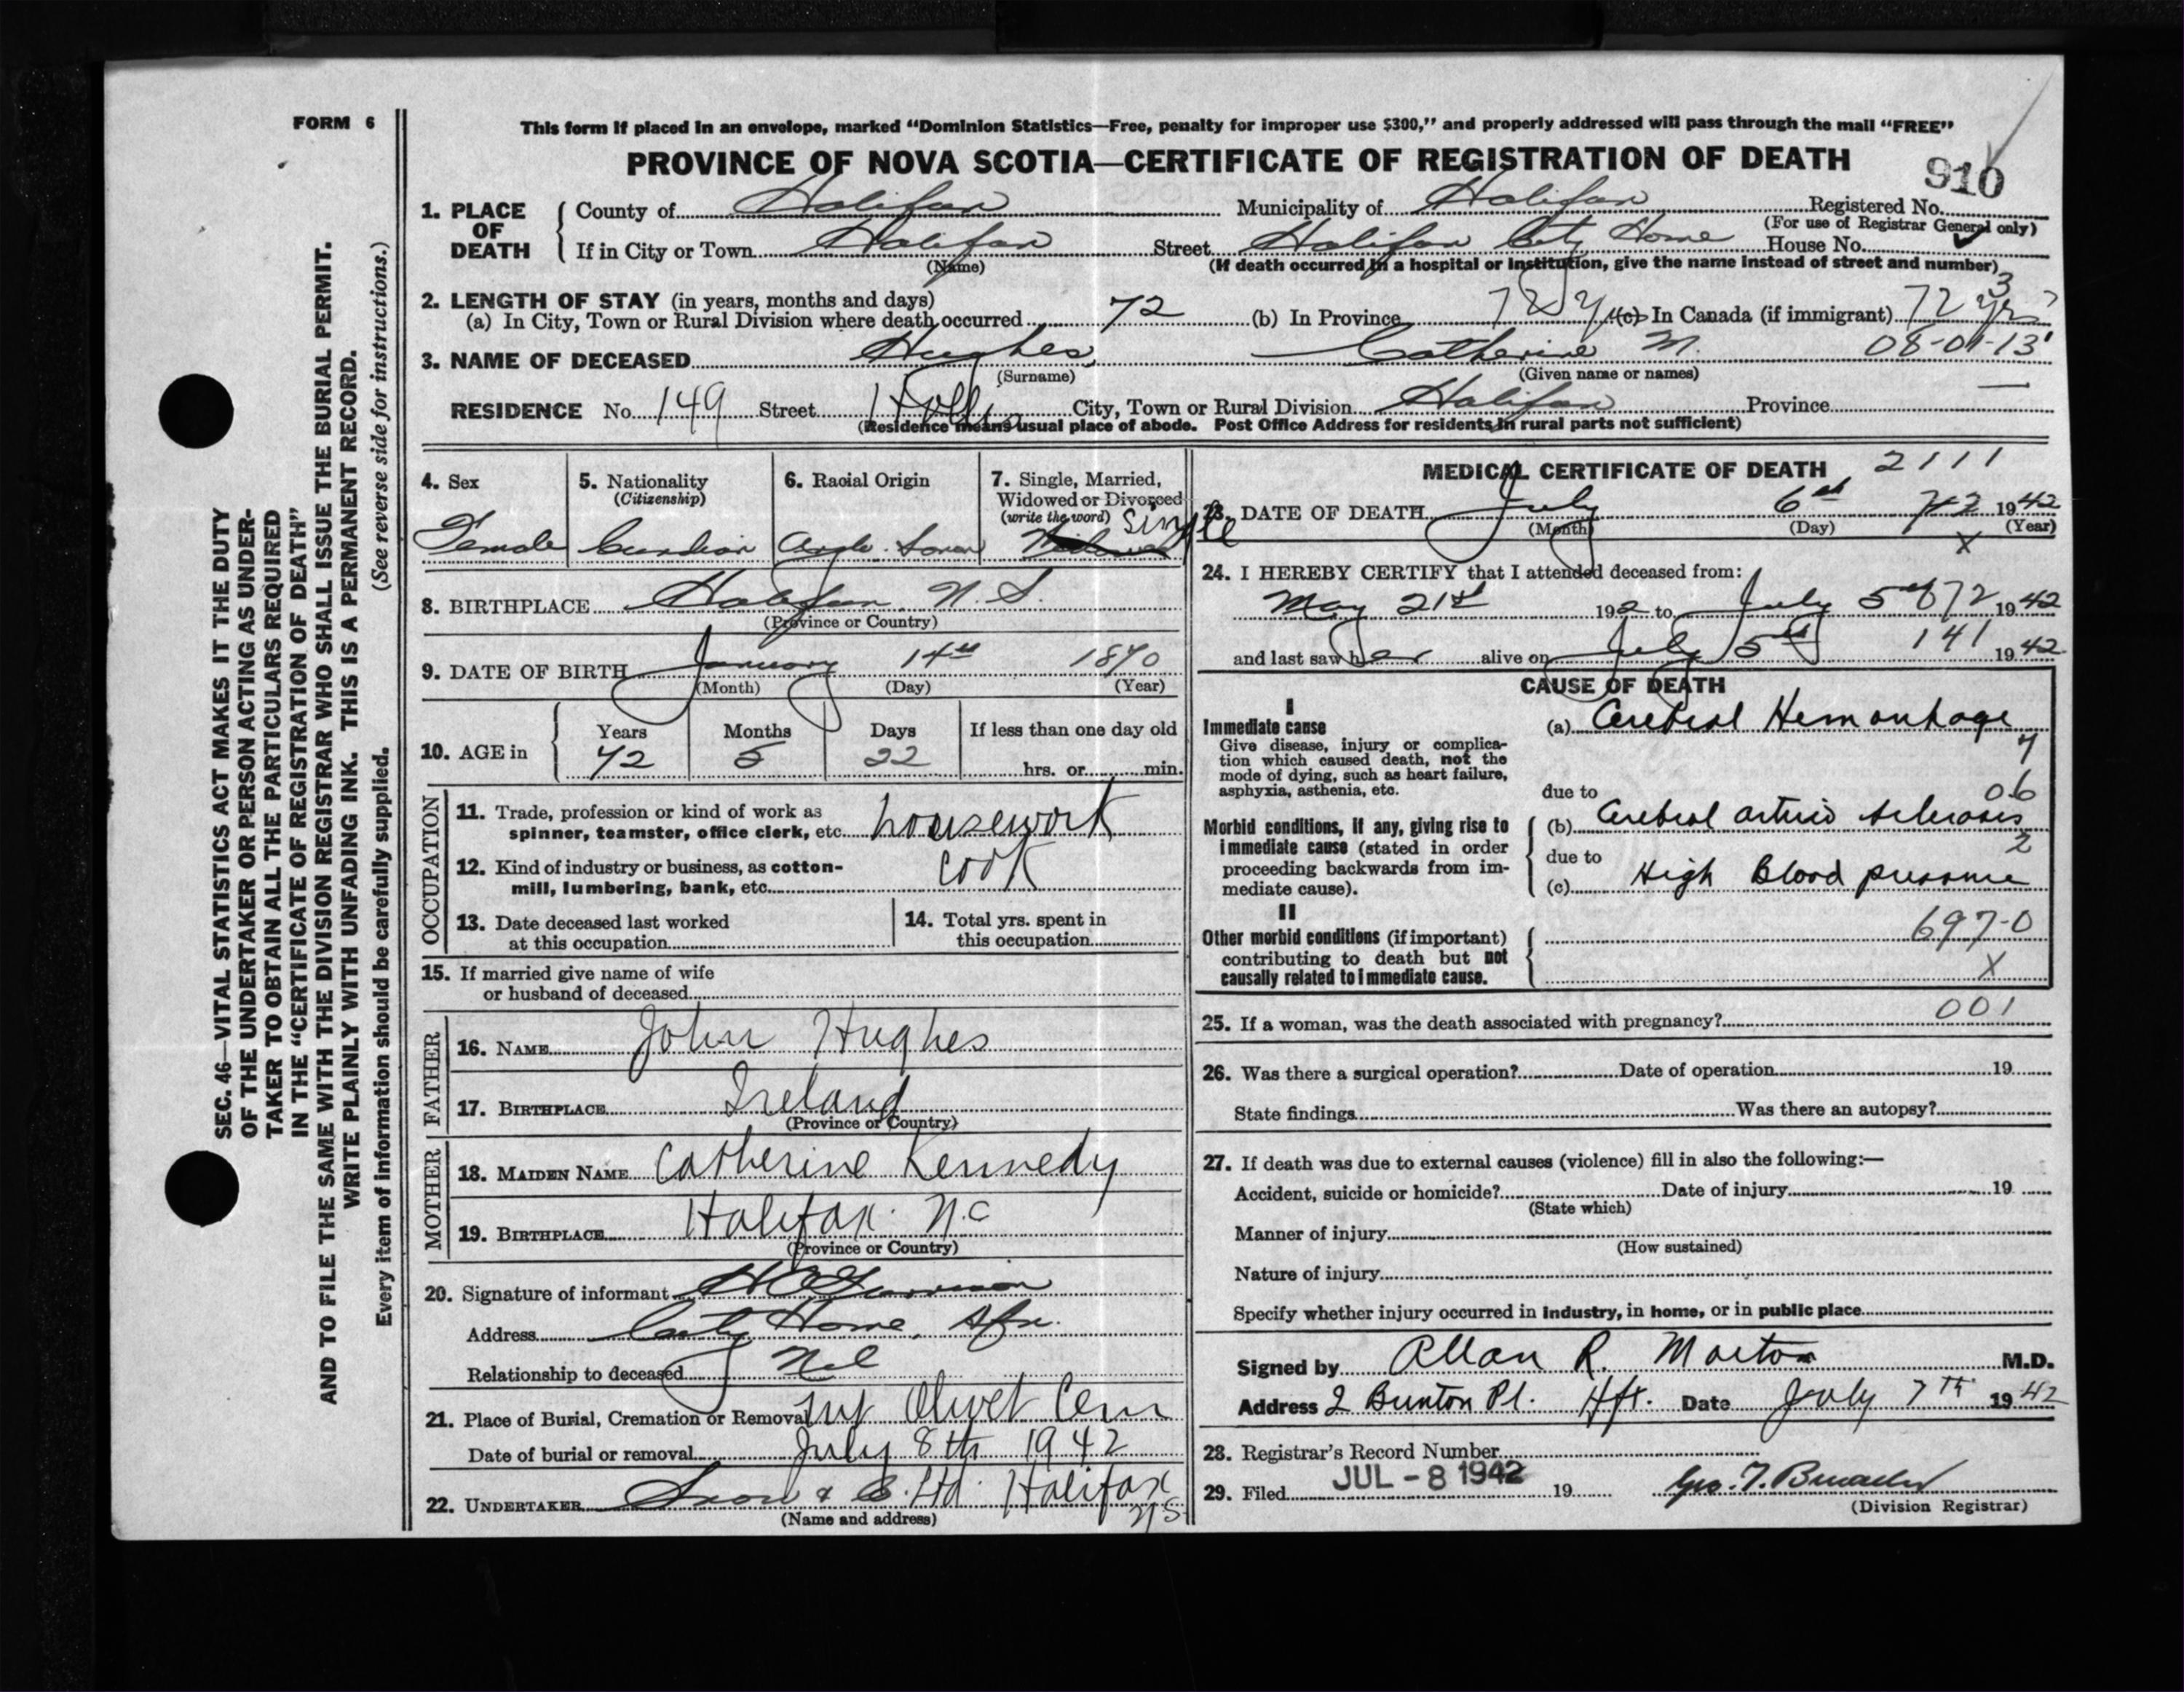 FORM 6
This form if placed in an envelope, marked “Dominion Statistics—Free, penalty for improper use $300,” and properly addressed will pass through the mail “FREE”
PROVINCE OF NOVA SCOTIA—CERTIFICATE OF REGISTRATION OF DEATH
910
1. PLACE OF DEATH
County of Halifax Municipality of Halifax Registered No.
(For use of Registrar General only)
If in City or Town Halifax Street Halifax City Home House No.
(Name) (If death occurred in a hospital or institution, give the name instead of street and number)
3
2. LENGTH OF STAY (in years, months and days)
(a) In City, Town or Rural Division where death occurred 72 (b) In Province 72 y (c) In Canada (if immigrant) 72 yrs
3. NAME OF DECEASED Hughes, Catherine M. 08-01-13
(Surname) (Given name or names)
RESIDENCE No. 149 Street Hollis City, Town or Rural Division Halifax Province —
(Residence means usual place of abode. Post Office Address for residents in rural parts not sufficient)
4. Sex
Female
5. Nationality
(Citizenship)
6. Racial Origin
7. Single, Married,
Widowed or Divorced
(write the word) Single
8. BIRTHPLACE Halifax, N. S.
(Province or Country)
9. DATE OF BIRTH January 14th 1870
(Month) (Day) (Year)
10. AGE in
Years Months Days If less than one day old
72 5 22 hrs. or min.
OCCUPATION
11. Trade, profession or kind of work as
spinner, teamster, office clerk, etc. housework
12. Kind of industry or business, as cotton-
mill, lumbering, bank, etc. cook
13. Date deceased last worked
at this occupation
14. Total yrs. spent in
this occupation
15. If married give name of wife
or husband of deceased
FATHER
16. NAME John Hughes
17. BIRTHPLACE Ireland
(Province or Country)
MOTHER
18. MAIDEN NAME Catherine Kennedy
19. BIRTHPLACE Halifax. N.C
(Province or Country)
20. Signature of informant
Address City Home, Hfx.
Relationship to deceased Nil
21. Place of Burial, Cremation or Removal Mt Olivet Cem
Date of burial or removal July 8th 1942
22. UNDERTAKER Snow & Co. Ltd. Halifax
NS
(Name and address)
MEDICAL CERTIFICATE OF DEATH 2111
23. DATE OF DEATH July 6th 72 1942
(Month) (Day) (Year)
X
24. I HEREBY CERTIFY that I attended deceased from:
May 21st 192 to July 5th 72 1942
and last saw her alive on July 5th 141 1942
CAUSE OF DEATH
I
Immediate cause
Give disease, injury or complica-
tion which caused death, not the
mode of dying, such as heart failure,
asphyxia, asthenia, etc.
(a) Cerebral Hemorrhage
7
due to 06
Morbid conditions, if any, giving rise to
immediate cause (stated in order
proceeding backwards from im-
mediate cause).
(b) Cerebral arterio sclerosis
2
due to
(c) High Blood pressure
II
Other morbid conditions (if important)
contributing to death but not
causally related to immediate cause.
697-0
X
001
25. If a woman, was the death associated with pregnancy?
26. Was there a surgical operation? Date of operation 19
State findings Was there an autopsy?
27. If death was due to external causes (violence) fill in also the following:—
Accident, suicide or homicide? Date of injury 19
(State which)
Manner of injury
(How sustained)
Nature of injury
Specify whether injury occurred in industry, in home, or in public place
Signed by Allan R. Morton M.D.
Address 2 Brunton Pl. Hfx. Date July 7th 1942
28. Registrar's Record Number
29. Filed JUL - 8 1942 19
(Division Registrar)
SEC. 46—VITAL STATISTICS ACT MAKES IT THE DUTY
OF THE UNDERTAKER OR PERSON ACTING AS UNDER-
TAKER TO OBTAIN ALL THE PARTICULARS REQUIRED
IN THE “CERTIFICATE OF REGISTRATION OF DEATH”
AND TO FILE THE SAME WITH THE DIVISION REGISTRAR WHO SHALL ISSUE THE BURIAL PERMIT.
WRITE PLAINLY WITH UNFADING INK. THIS IS A PERMANENT RECORD.
(See reverse side for instructions.)
Every item of information should be carefully supplied.